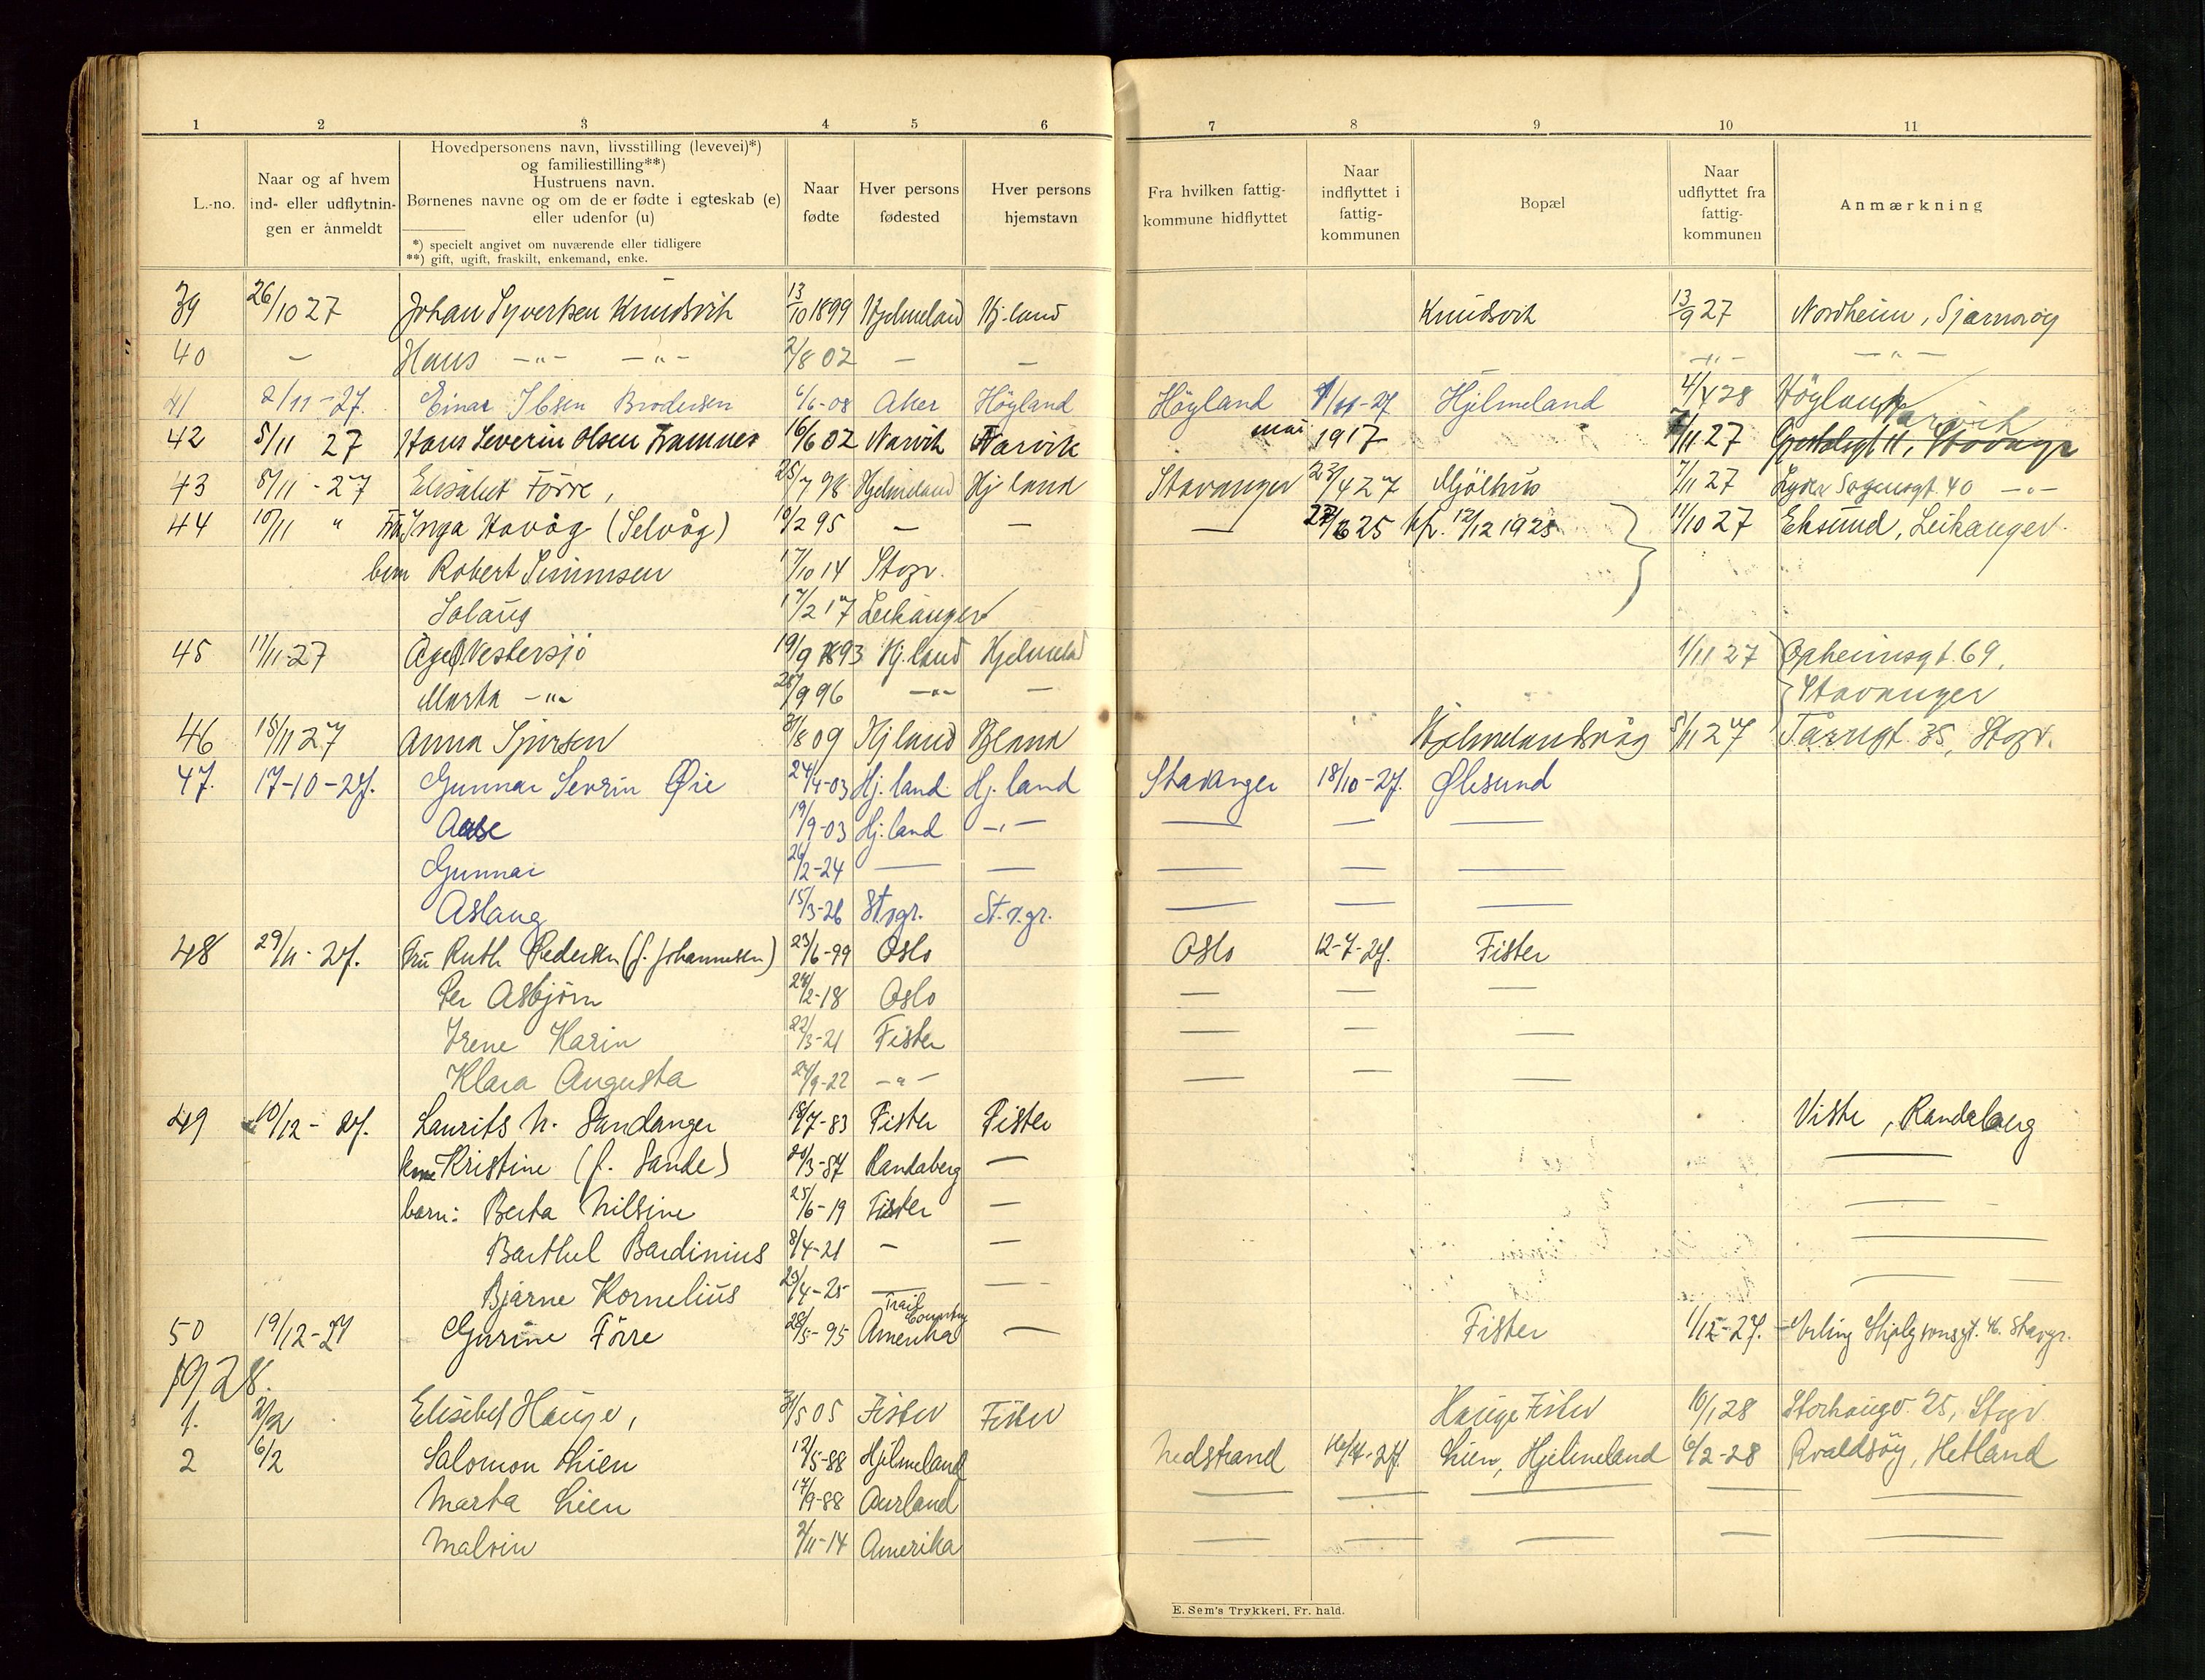 1 2 3 4 5 6 7 8 9 10 11
L.-no.
Naar og af hvem
ind- eller udflytnin-
gen er anmeldt
Hovedpersonens navn, livsstilling (levevei)*)
og familiestilling**)
Hustruens navn.
Børnenes navne og om de er fødte i egteskab (e)
eller udenfor (u)
*) specielt angivet om nuværende eller tidligere
**) gift, ugift, fraskilt, enkemand, enke.
Naar
fødte
Hver persons
fødested
Hver persons
hjemstavn
Fra hvilken fattig-
kommune hidflyttet
Naar
indflyttet i
fattig-
kommunen
Bopæl
Naar
udflyttet fra
fattig-
kommunen
Anmærkning
39 26/10 27 Johan Syvertsen Knudsvik 13/10 1899 Hjelmeland Hj.land Knudsvik 13/9 27 Nordheim, Sjernarøy
40 — Hans -"- -"- 2/8 02 — — -"- -"-
41 2/11-27. Einar Ibsen Brodersen 6/6-08 Aker Höyland Höyland 1/11-27 Hjelmeland 4/4 28 Höyland
42 5/11 27 Hans Severin Olsen Framnes 16/6 02 Narvik Narvik mai 1917 7/11 27 Narvik
43 8/11-27 Elisabet Förre, 25/7 98 Hjelmeland Hj land Stavanger 23/4 27 Mjölhus 7/11 27 Lyder Sagensgt. 40 -"-
44 10/11 " Fru Inga Havåg (Selvåg) 10/2 95 — — — 27/6 25 hfr. 12/12 1925 11/10 27 Eksund, Leikanger.
barn Robert Simmsen 17/10 14 Stvgr.
Solaug 17/2 17 Leikanger
45 11/11-27 Åge Ø. Vestersjö 19/9 1893 Hj.land Hjelmeland 1/11 27 Opheimsgt. 69,
Marta -"- 28/9 96 -"- — Stavanger
46 15/11 27 Anna Sjursen 31/8 09 Hj land Hj land Hjelmelandsvåg 5/11 27 Tårngt. 35, Stvgr.
47. 17-10-27. Gunnar Sevrin Øie 24/4-03 Hj.land Hj.land Stavanger 18/10-27. Ølesund
Aase 19/9-03 Hj.land -"- — — —
Gunnar 26/2-24 — — — — —
Aslaug 15/3-26 St.vgr. St.v.gr. — — —
48 29/11-27. Fru Ruth Pedersen (f. Johannesen) 23/6-99 Oslo Oslo 12-7-27. Fister
Per Asbjörn 24/2-18 Oslo — — —
Irene Karin 22/3-21 Fister — — —
Klara Augusta 24/9-22 -"- — — —
49 10/12-27. Laurits N. Sandanger 18/7-83 Fister Fister Viste, Randaberg
kone Kristine (f. Sande) 20/3-87 Randaberg — —
barn: Berta Nilsine 25/6-19 Fister — —
Barthel Bardinius 8/4-21 — — —
Bjarne Kornelius 23/4-25 — — —
50 19/12-27 Gurine Förre 28/5-95 Trail County Amerika — Fister 1/12-27. Erling Skjalgsonsgt. 46. Stavgr.
1928.
1. 2/2 Elisabet Hauge, 31/5 05 Fister Fister Hauge Fister 10/1 28 Storhaugv. 25, Stvgr.
2 6/2 Salomon Lien 12/5-88 Hjelmeland Nedstrand 16/4-27. Lien, Hjelmeland 6/2-28 Roaldsöy, Hetland
Marta Lien 17/9-88 Aurland — — — — —
Malvin 2/11-14 Amerika — — — — —
E. Sem's Trykkeri, Fr.hald.